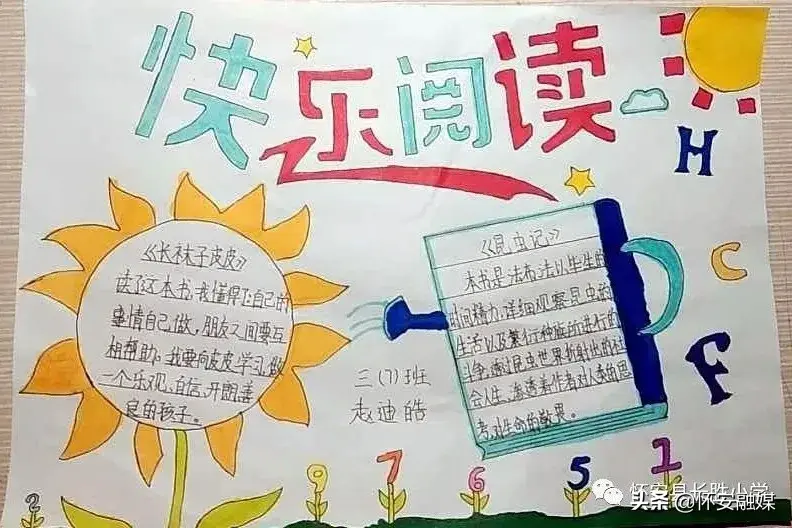 快乐阅读
H
C
F
《长袜子皮皮》
读了这本书,我懂得了自己的
事情自己做,朋友之间要互
相帮助。我要向皮皮学习,做
一个乐观、自信、开朗、善
良的孩子。
《昆虫记》
本书是法布尔以毕生的
时间精力,详细观察昆虫的
生活以及繁衍种族所进行的
斗争,通过昆虫世界折射出的社
会人生,渗透着作者对人类的思
考,对生命的敬畏。
三(7)班
赵迪皓
2
9
7
6
5
1
怀安县长胜小学
头条@怀安融媒